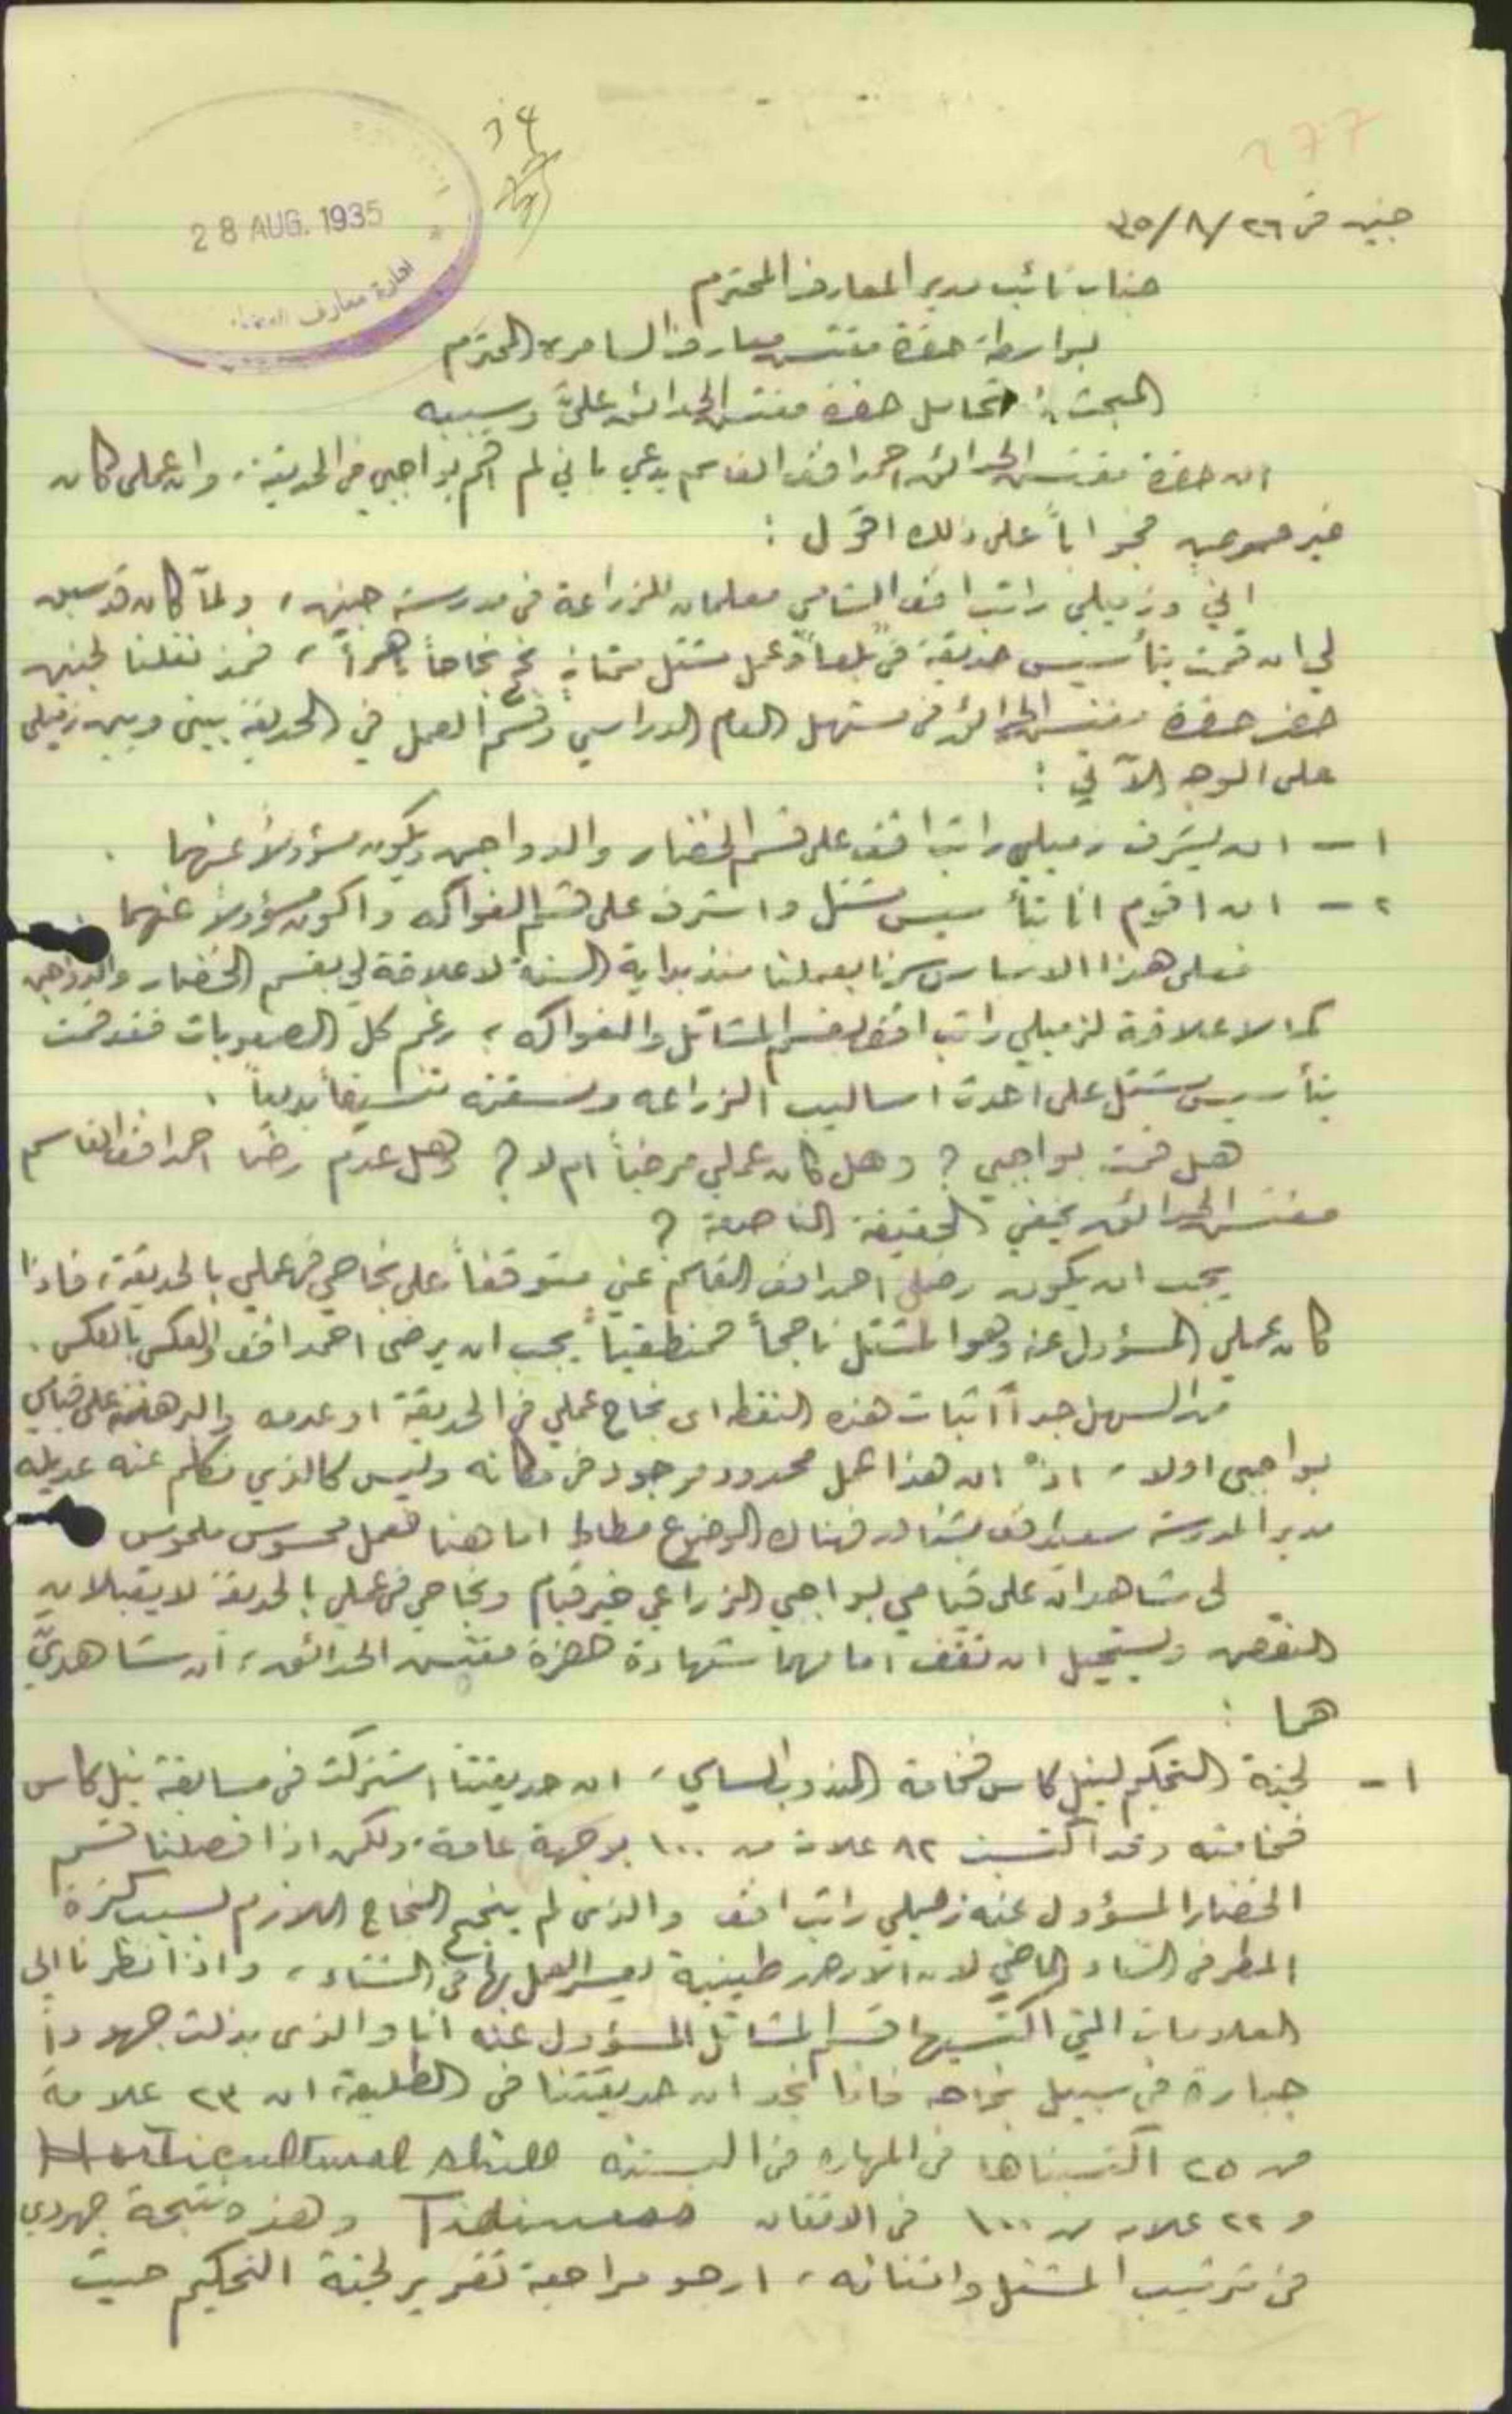 277
28 AUG. 1935
ادارة معارف
جنين في ٢٦/٨/٣٥
جناب نائب مدير المعارف المحترم
بواسطة حضرة مفتش معارف السامرة المحترم
المبحث: تحامل حضرة مفتش الحدائق عليَّ وسببه
ان حضرة مفتش الحدائق احمد افندي القاسم يدعي باني لم اقم بواجبي في الحديقة، وان عملي كان
غير مرضٍ فجواباً على ذلك اقول :
اني وزميلي راتب افندي الشامي معلمان للزراعة في مدرسة جنين، ولمّا كان قد سبق
لي ان قمت بتأسيس حديقة في "بلعا" وعمل مشتل نجح نجاحاً باهراً، فمذ نقلنا لجنين
حضر حضرة مفتش الحدائق في مستهل العام الدراسي وقسّم العمل في الحديقة بيني وبين زميلي
على الوجه الآتي :
١ - ان يشرف زميلي راتب افندي على قسم الخضار والدواجن ويكون مسؤولاً عنهما .
٢ - ان اقوم انا بتأسيس مشتل واشرف على قسم الفواكه واكون مسؤولاً عنهما
فعلى هذا الاساس سرنا بعملنا منذ بداية السنة لا علاقة لي بقسم الخضار والدواجن
كما لا علاقة لزميلي راتب افندي بقسم المشاتل والفواكه، رغم كل الصعوبات فقد قمت
بتأسيس مشتل على احدث اساليب الزراعه ونسقته تنسيقاً بديعاً .
هل قمت بواجبي ؟ وهل كان عملي مرضياً ام لا ؟ وهل عدم رضا احمد افندي القاسم
مفتش الحدائق يخفي الحقيقة الناصعة ؟
يجب ان يكون رضى احمد افندي القاسم عني متوقفاً على نجاحي في عملي بالحديقة، فاذا
كان عملي المسؤول عنه وهو المشتل ناجحاً فمنطقياً يجب ان يرضى احمد افندي والعكس بالعكس .
من السهل جداً اثبات هذه النقطه اى نجاح عملي في الحديقة او عدمه والبرهنة على قيامي
بواجبي اولا، اذ ان هذا عمل محدود موجود في مكانه وليس كالذي تكلم عنه عديله
مدير المدرسة سعيد افندي فهناك الوضع مطاط اما هنا فعمل محسوس ملموس
لي شاهدان على قيامي بواجبي الزراعي خير قيام ونجاحي في عملي بالحديقة لا يقبلان
النقض ويستحيل ان تقف امامهما شهادة حضرة مفتش الحدائق، ان شاهديَّ
هما :
١ - لجنة التحكيم لنيل كاس فخامة المندوب السامي، ان حديقتنا اشتركت في مسابقة نيل كاس
فخامته وقد اكتسبت ٨٢ علامة من ١٠٠ بوجهة عامة، ولكن اذا فصلنا قسم
الخضار المسؤول عنه زميلي راتب افندي والذى لم ينجح النجاح اللازم بسبب كثرة
المطر في الشتاء الماضي لان الارض طينية يعسر العمل بها في الشتاء، واذا نظرنا الى
العلامات التي اكتسبها قسم المشاتل المسؤول عنه انا والذى بذلت جهوداً
جبارة في سبيل نجاحه فاننا نجد ان حديقتنا في الطليعة، ان ٢٣ علامة
من ٢٥ اكتسبناها في المهاره في البستنه Horticultural skill
و ٢٢ علامه من ١٠٠ في الاتقان Tidiness وهذه نتيجة جهودي
في ترتيب المشتل واتقانه، ارجو مراجعة تقرير لجنة التحكيم حيث